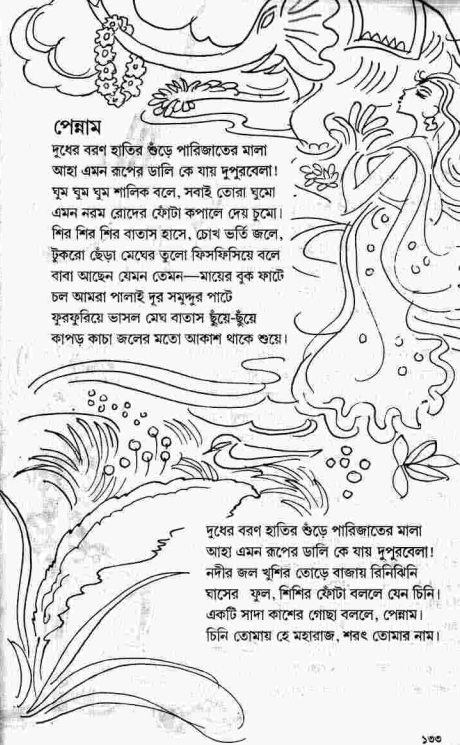 পেন্নাম
দুধের বরণ হাতির শুঁড়ে পারিজাতের মালা
আহা এমন রূপের ডালি কে যায় দুপুরবেলা!
ঘুম ঘুম ঘুম শালিক বলে, সবাই তোরা ঘুমো
এমন নরম রোদের ফোঁটা কপালে দেয় চুমো।
শির শির শির বাতাস হাসে, চোখ ভর্তি জলে,
টুকরো ছেঁড়া মেঘের তুলো ফিসফিসিয়ে বলে
বাবা আছেন যেমন তেমন—মায়ের বুক ফাটে
চল আমরা পালাই দূর সমুদ্দুর পাটে
ফুরফুরিয়ে ভাসল মেঘ বাতাস ছুঁয়ে-ছুঁয়ে
কাপড় কাচা জলের মতো আকাশ থাকে শুয়ে।
দুধের বরণ হাতির শুঁড়ে পারিজাতের মালা
আহা এমন রূপের ডালি কে যায় দুপুরবেলা!
নদীর জল খুশির তোড়ে বাজায় রিনিঝিনি
ঘাসের ফুল, শিশির ফোঁটা বললে যেন চিনি।
একটি সাদা কাশের গোছা বললে, পেন্নাম।
চিনি তোমায় হে মহারাজ, শরৎ তোমার নাম।
১৩৩